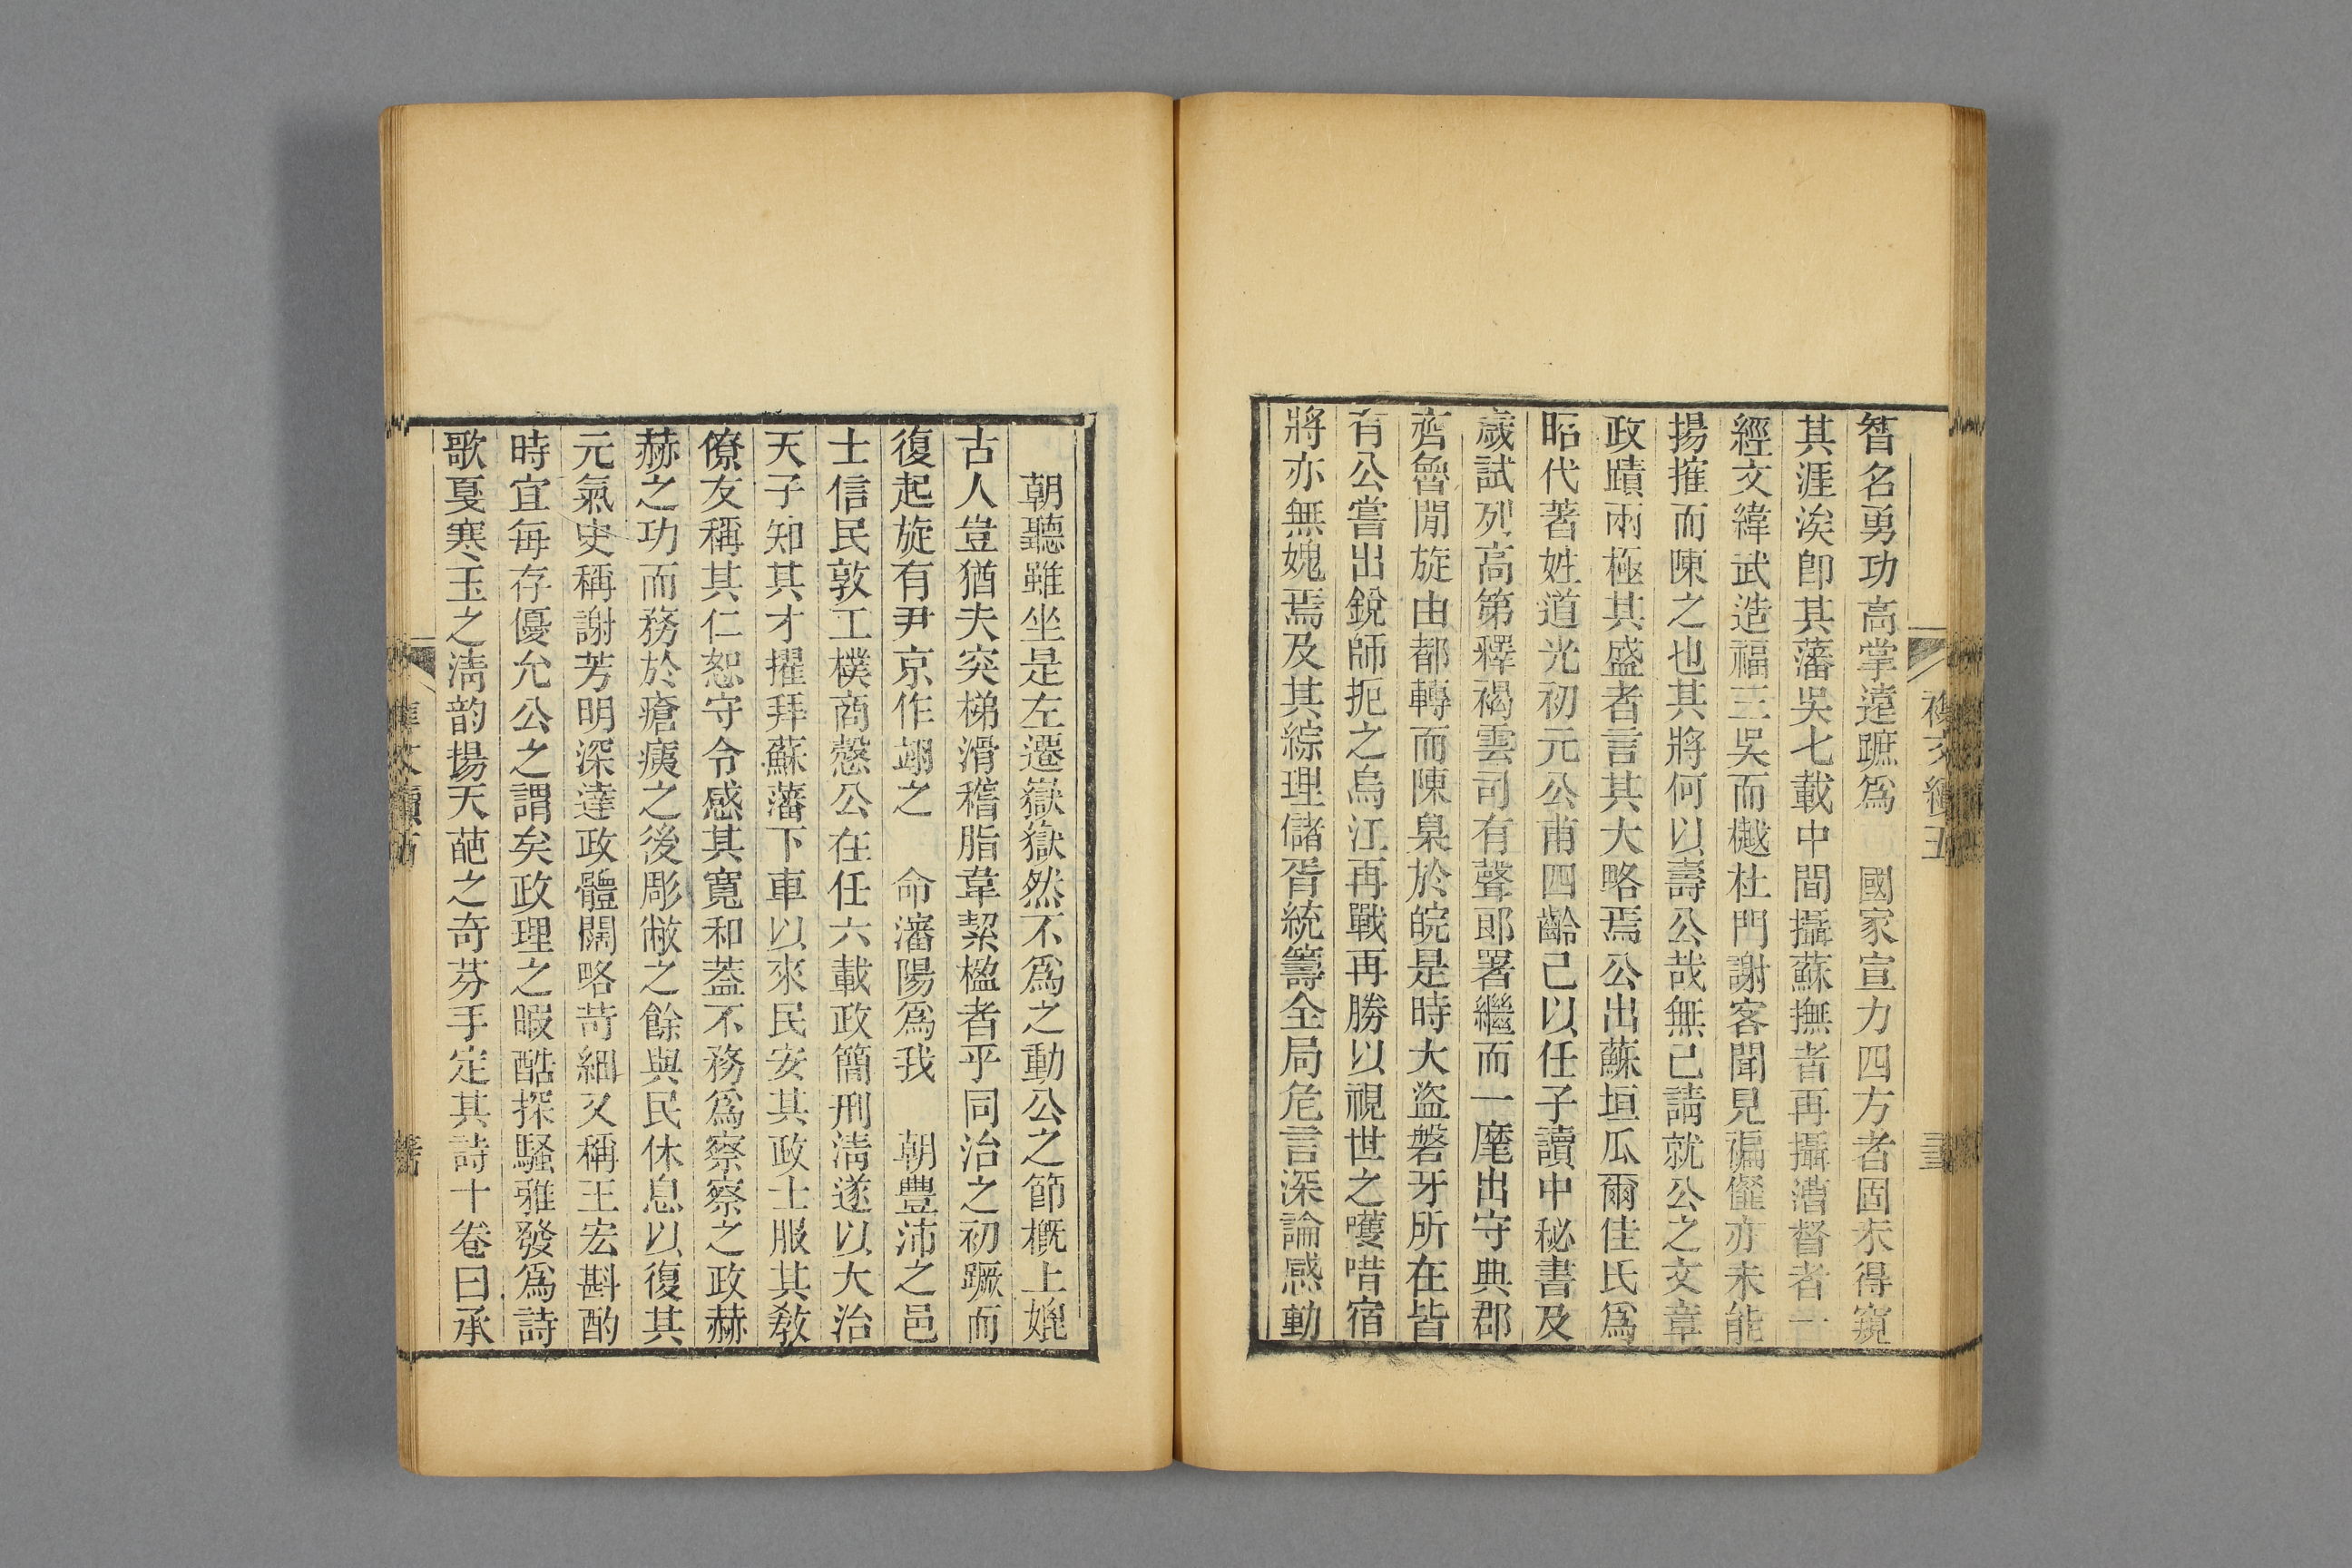 智名勇功高掌遠蹠為　國家宣力四方者固未得窺
其涯涘卽其藩吳七載中間攝蘇撫者再攝漕督者一
經文緯武造福三吳而樾杜門謝客聞見褊僿亦未能
揚搉而陳之也其將何以壽公哉無已請就公之文章
政蹟兩極其盛者言其大略焉公出蘇垣瓜爾佳氏爲
昭代著姓道光初元公甫四齡已以任子讀中秘書及
歲試列高第釋褐雲司有聲郎署繼而一麾出守典郡
齊魯閒旋由都轉而陳臬於皖是時大盜磐牙所在皆
有公嘗出銳師扼之烏江再戰再勝以視世之嚄唶宿
將亦無媿焉及其綜理儲胥統籌全局危言深論感動
朝聽雖坐是左遷嶽嶽然不爲之動公之節槪上媲
古人豈猶夫突梯滑稽脂韋絜楹者乎同治之初蹶而
復起旋有尹京作翊之　命瀋陽爲我　朝豐沛之邑
士信民敦工樸商慤公在任六載政簡刑淸遂以大治
天子知其才擢拜蘇藩下車以來民安其政士服其敎
僚友稱其仁恕守令感其寬和葢不務爲察察之政赫
赫之功而務於瘡痍之後彫敝之餘與民休息以復其
元氣史稱謝芳明深達政體闊略苛細又稱王宏斟酌
時宜每存優允公之謂矣政理之暇酷探騷雅發爲詩
歌戛寒玉之淸韵揚天葩之奇芬手定其詩十卷曰承